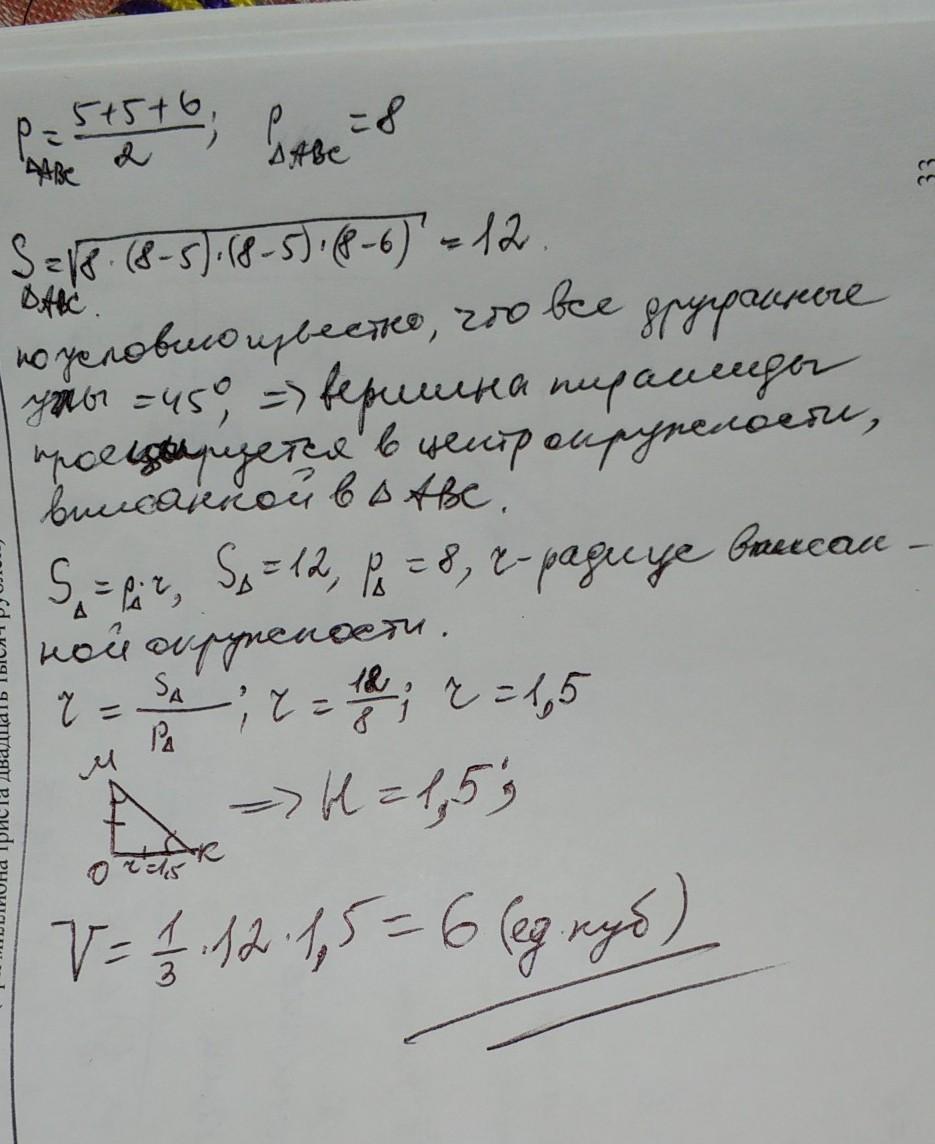 P△ABC = (5+5+6)/2; P△ABC = 8
S△ABC. = √(8·(8-5)·(8-5)·(8-6)) = 12.
по условию известно, что все двугранные
углы = 45°, => вершина пирамиды
проецируется в центр окружности,
вписанной в △ ABC.
S△ = p△·r, S△ = 12, p△ = 8, r - радиус вписан -
ной окружности.
r = S△/P△; r = 12/8; r = 1,5
M
=> H = 1,5;
O r=1,5 K
V = 1/3 · 12 · 1,5 = 6 (ед. куб)
33
миллиона триста двадцать тысяч рублей)